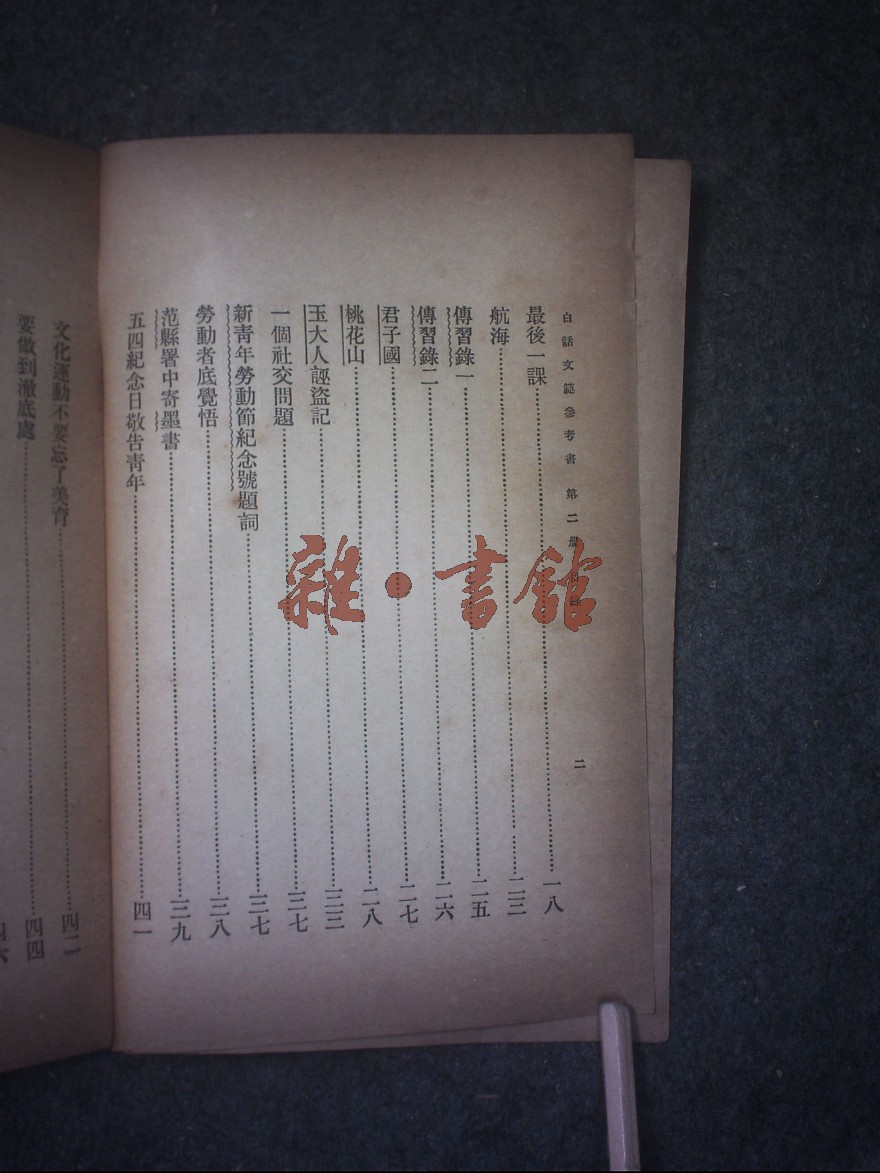 白話文範參考書 第二册 目錄 二
最後一課 一八
航海 二三
傳習錄一 二五
傳習錄二 二六
君子國 二七
桃花山 二八
玉大人誣盜記 三三
一個社交問題 三七
新靑年勞動節紀念號題詞 三七
勞動者底覺悟 三八
范縣署中寄墨書 三九
五四紀念日敬告靑年 四一
文化運動不要忘了美育 四二
要做到澈底處 四四
四六
雜·書館